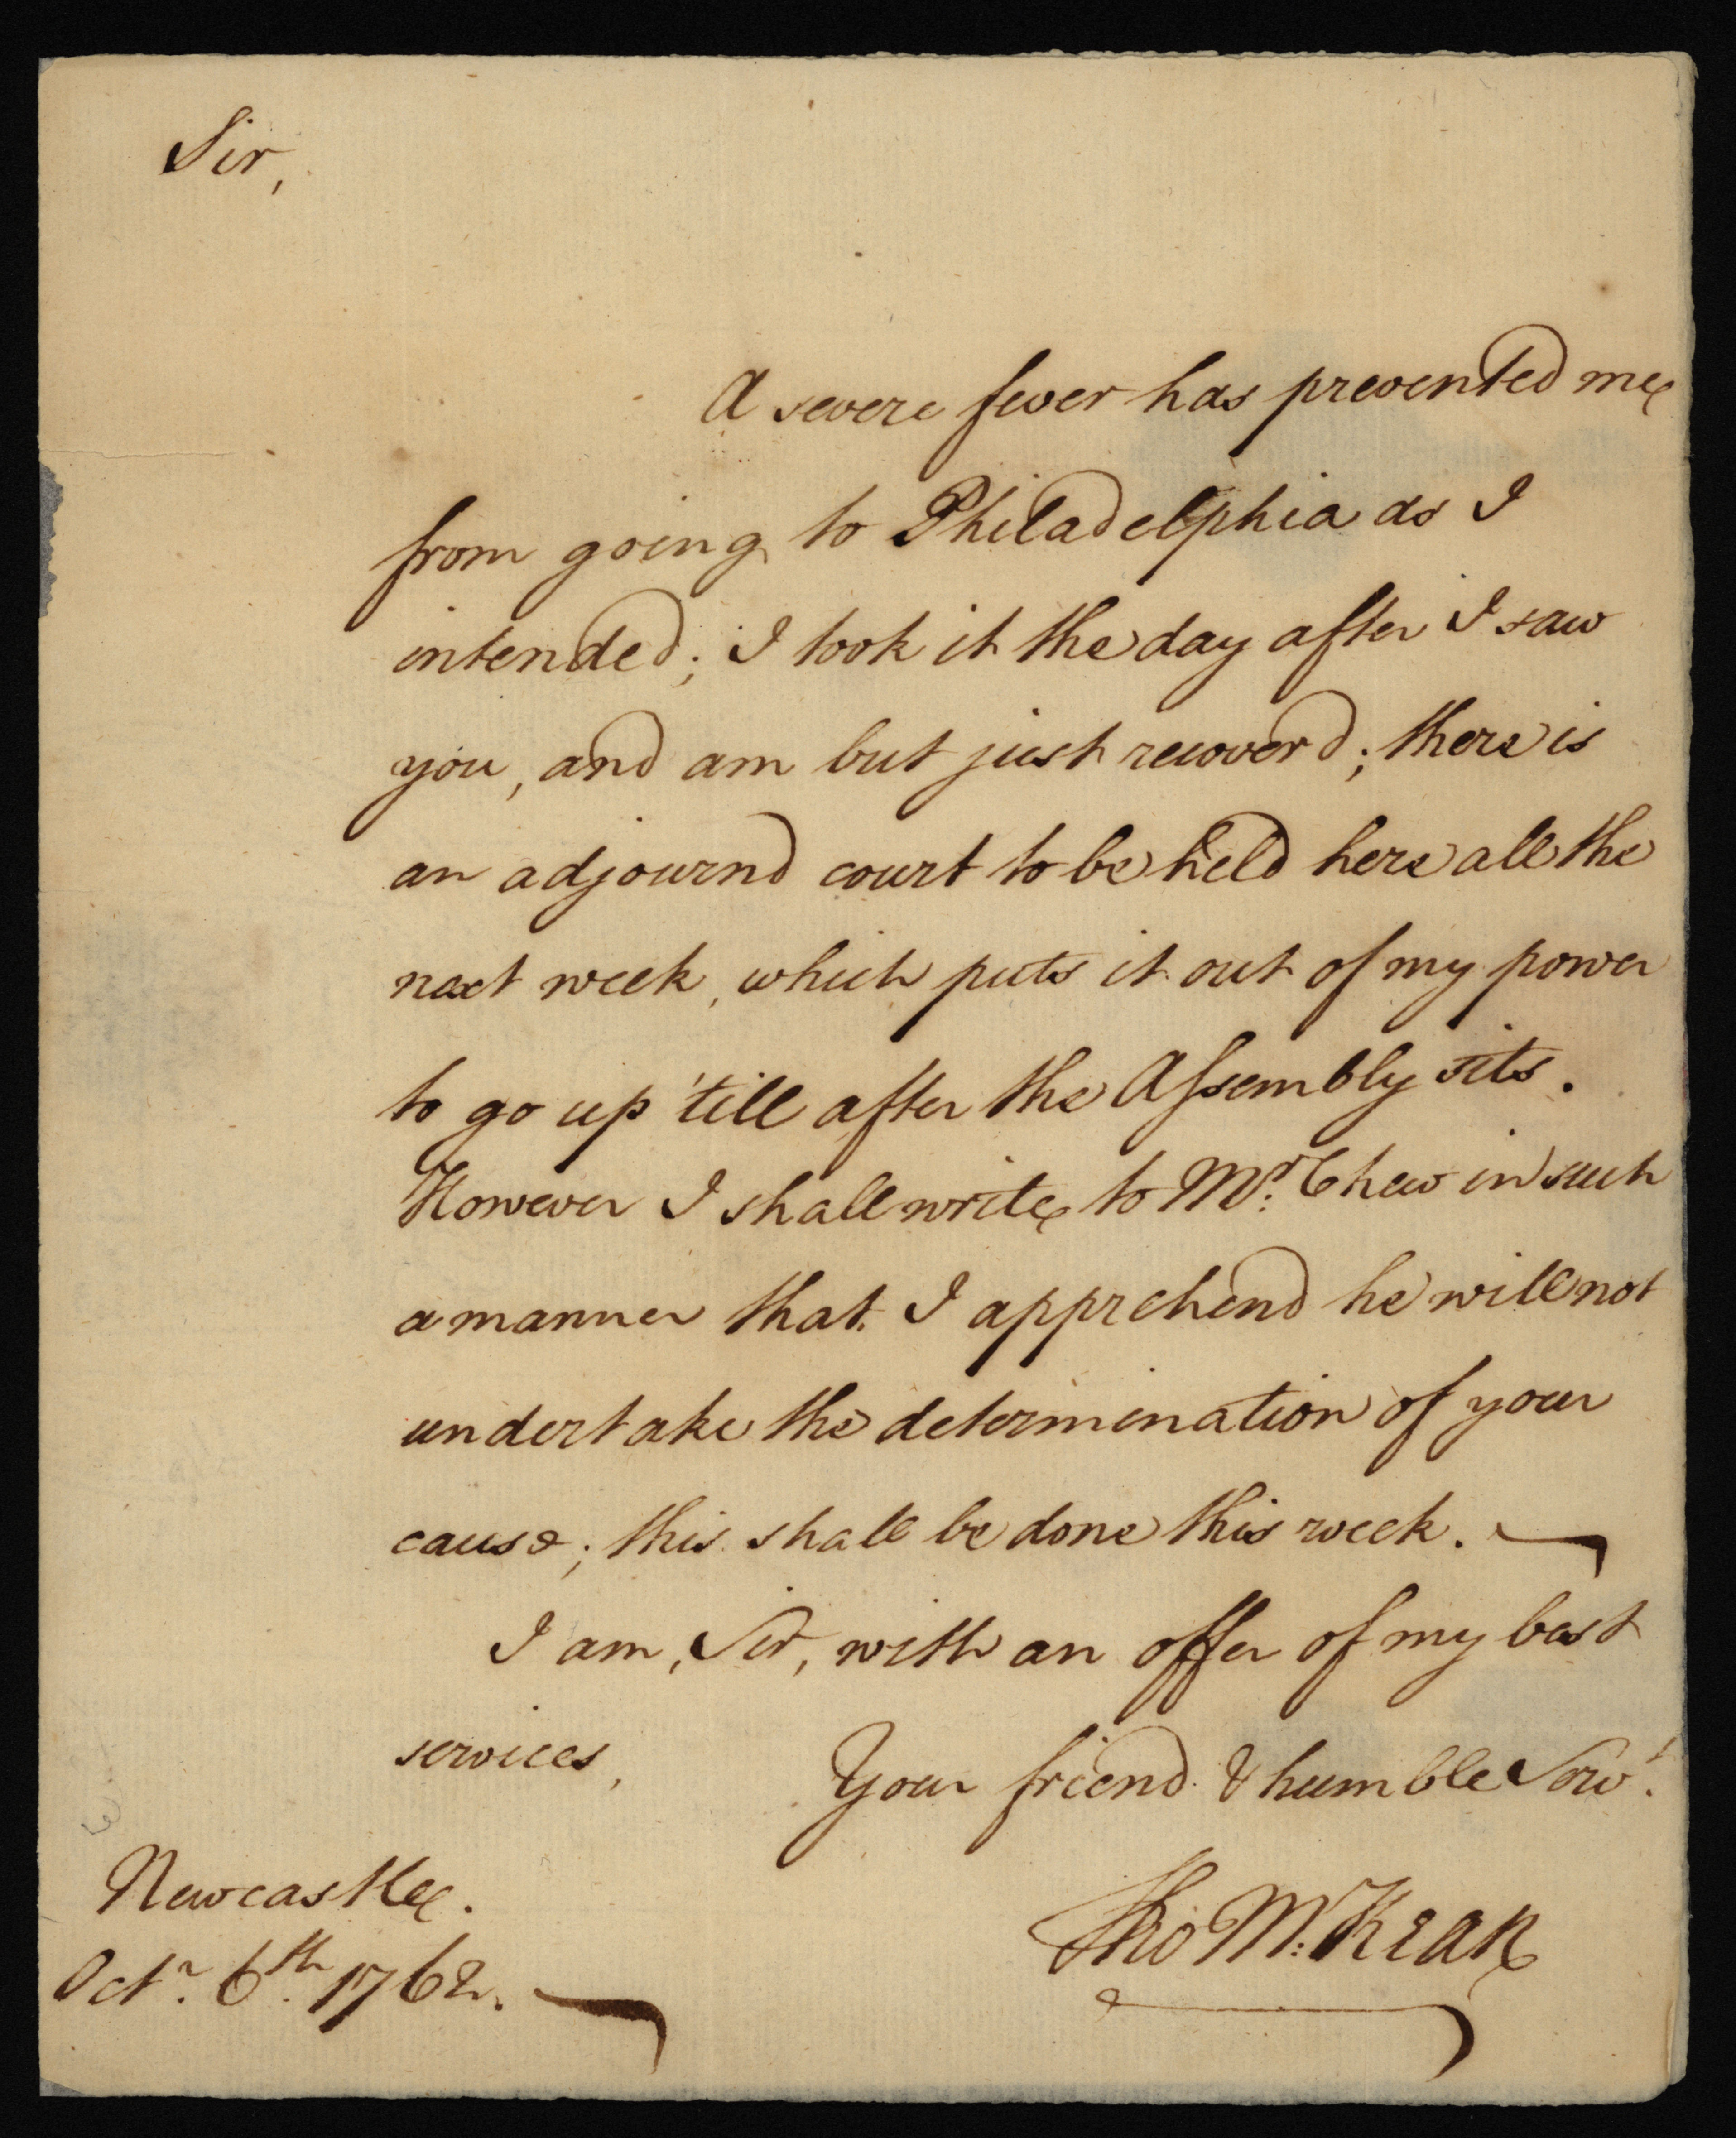 Sir,
A severe fever has prevented me
from going to Philadelphia as I
intended; I took it the day after I saw
you, and am but just recoverd; there is
an adjournd court to be held here all the
next week, which puts it out of my power
to go up 'till after the Assembly sits.
However I shall write to Mr. Chew in such
a manner that I apprehend he will not
undertake the determination of your
cause; this shall be done this week.
I am, Sir, with an offer of my best
services,
Your friend & humble Servt.
Tho M:Kean
Newcastle.
Octr. 6th. 1762.